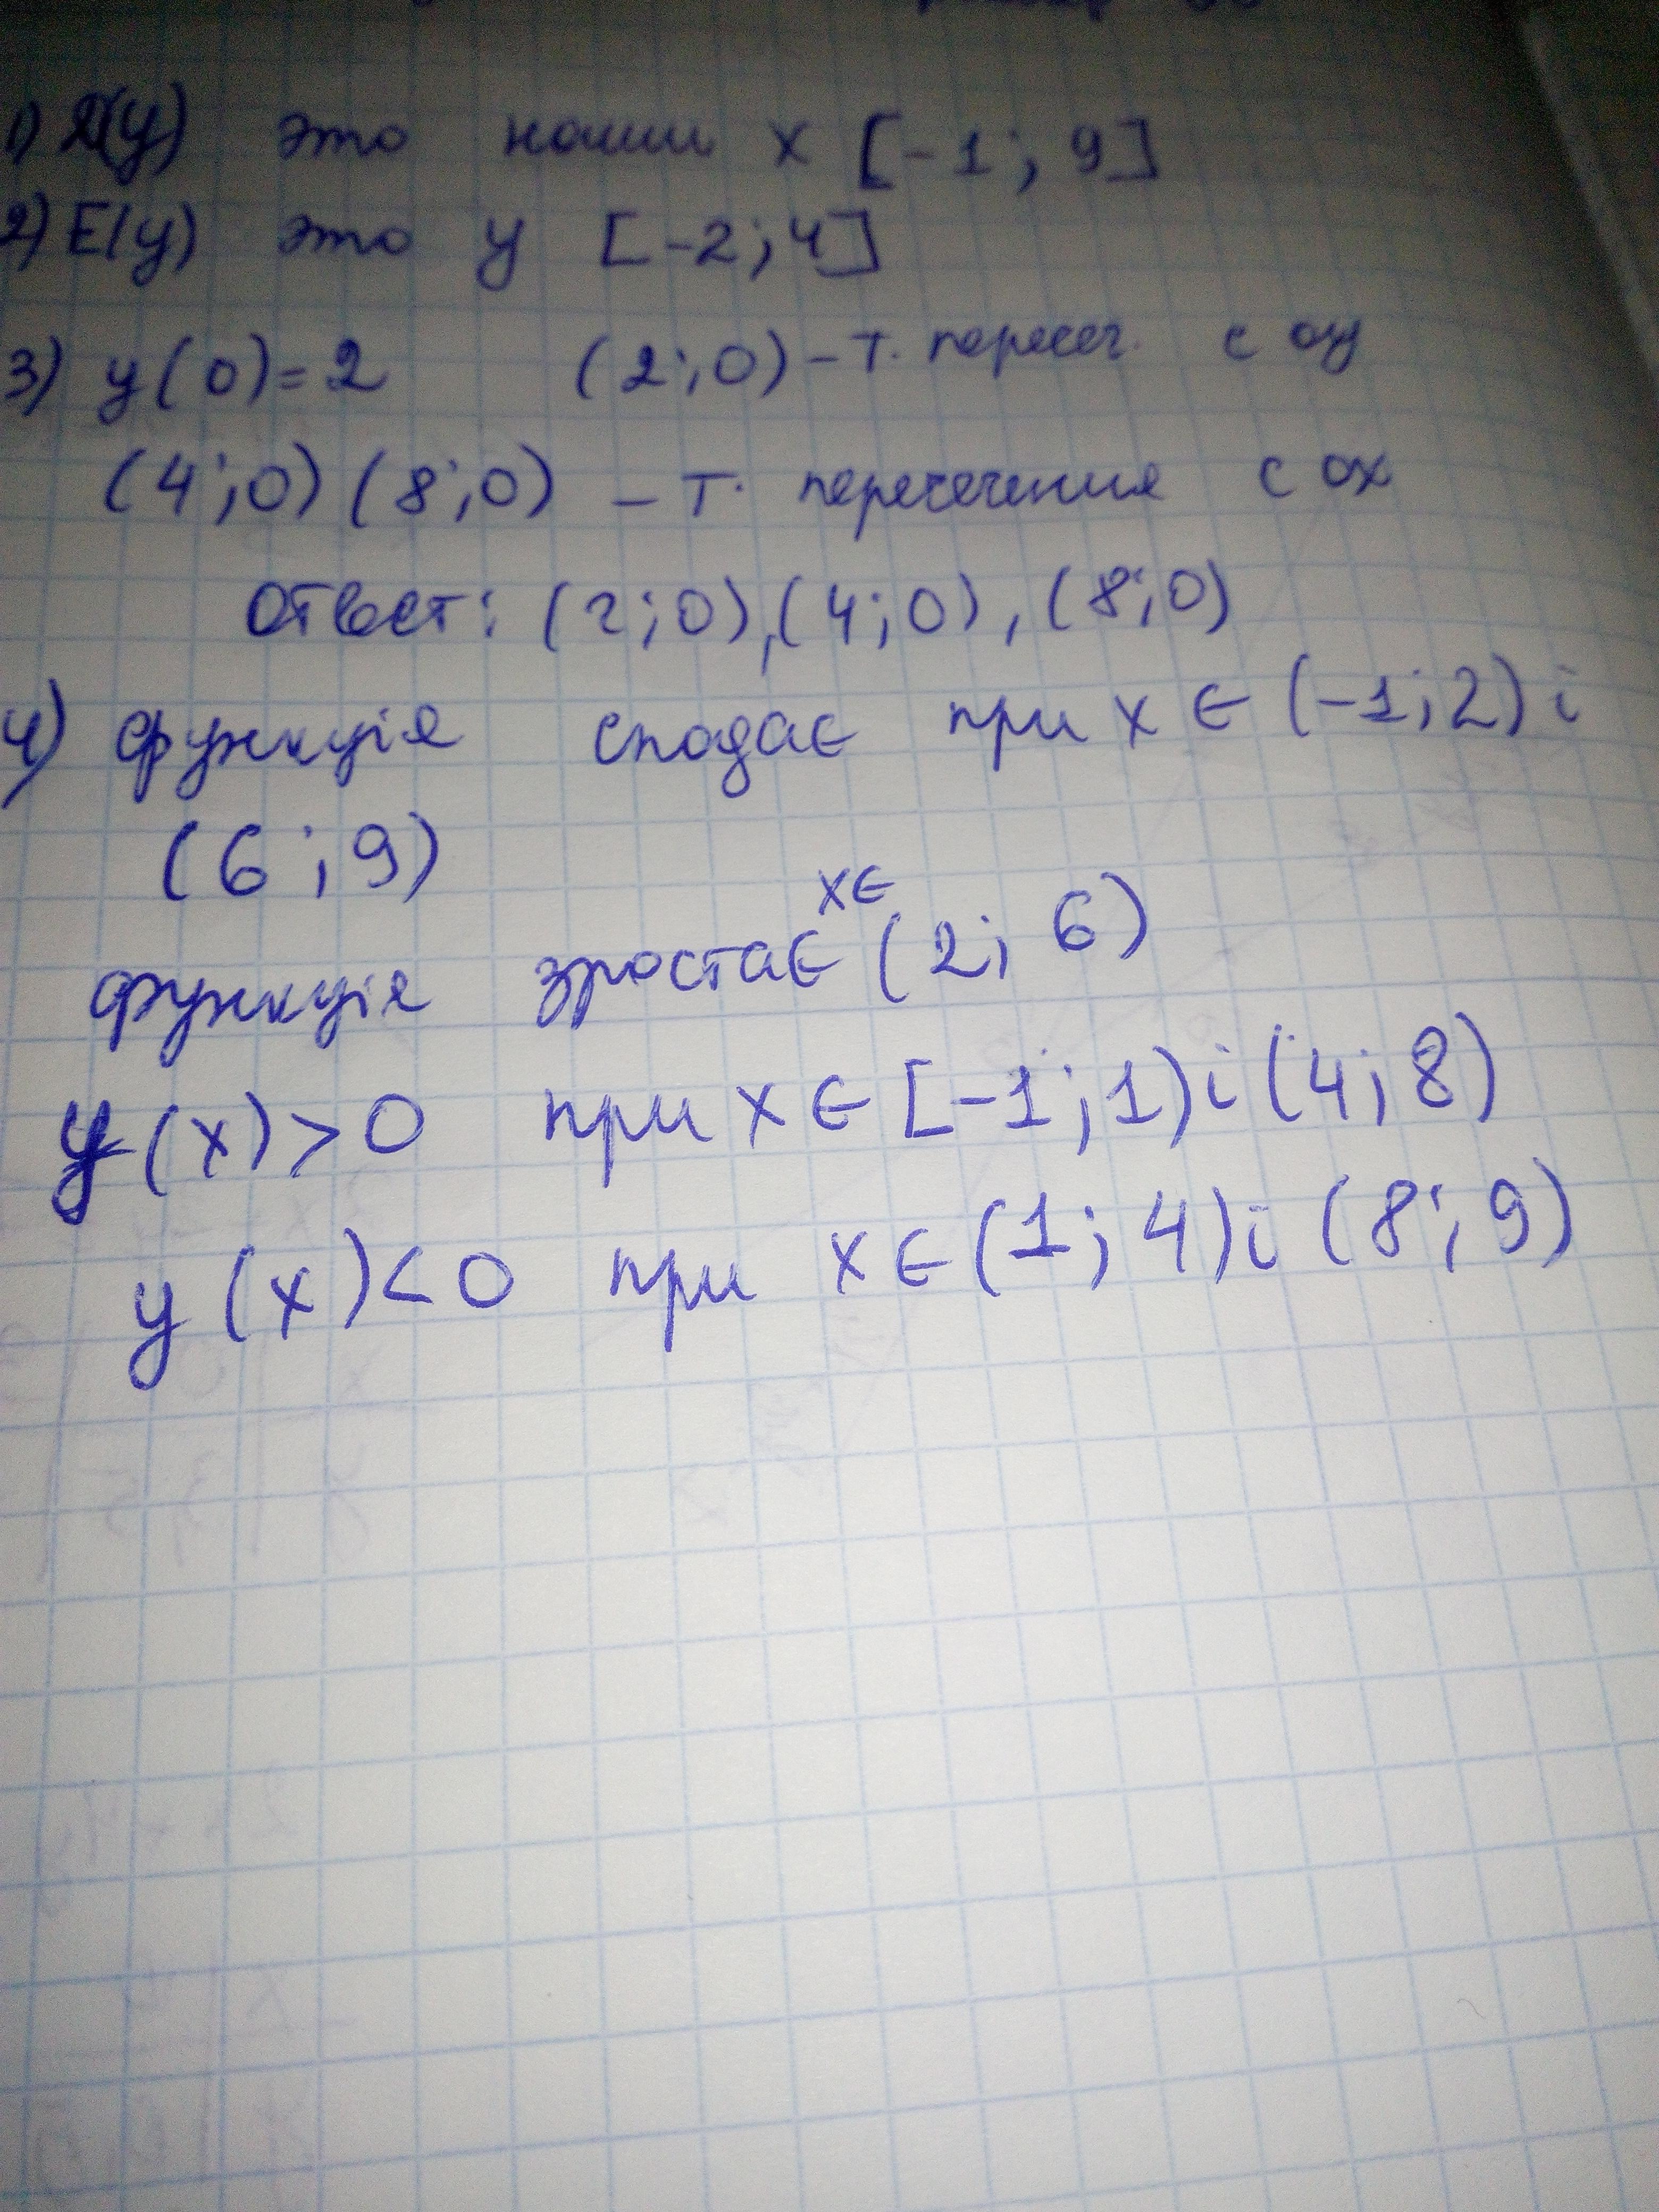 1) D(y) это наши x [-1; 9]
2) E(y) это y [-2; 4]
3) y(0)=2 (2; 0) - т. пересеч. с oy
(4; 0) (8; 0) - т. пересечения с ox
Ответ: (2; 0), (4; 0), (8; 0)
4) функція спадає при x ∈ (-1; 2) і
(6; 9)
x∈
функція зростає (2; 6)
y(x)>0 при x ∈ [-1; 1) і (4; 8)
y(x)<0 при x ∈ (1; 4) і (8; 9)